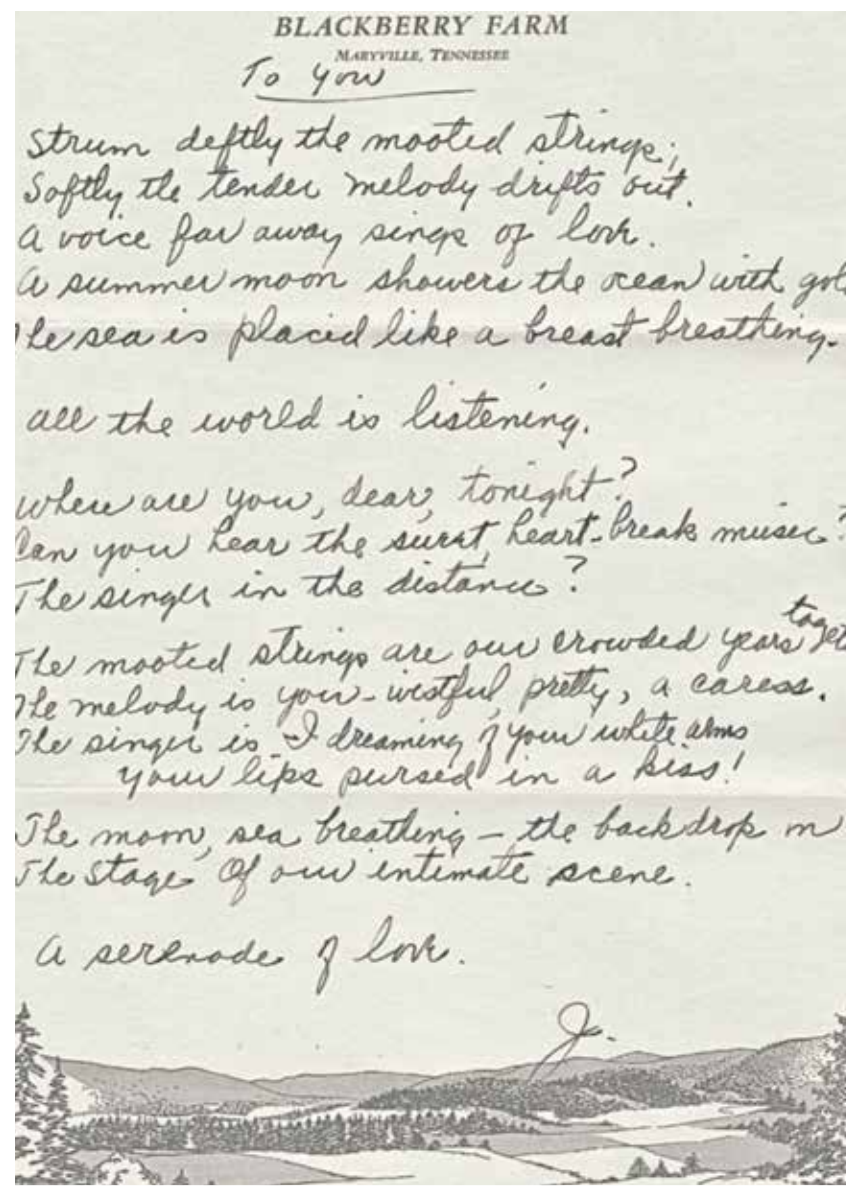 BLACKBERRY FARM
MARYVILLE, TENNESSEE
To You
Strum deftly the mooted strings;
Softly the tender melody drifts out.
A voice far away sings of love.
A summer moon showers the ocean with gol
The sea is placid like a breast breathing.
All the world is listening.
Where are you, dear, tonight?
Can you hear the sweet, heart-break music?
The singer in the distance?
The mooted strings are our crowded years toget
The melody is you - wistful, pretty, a caress.
The singer is I dreaming of your white arms
your lips pursed in a kiss!
The moon, sea breathing - the backdrop on
The stage of our intimate scene.
A serenade of love.